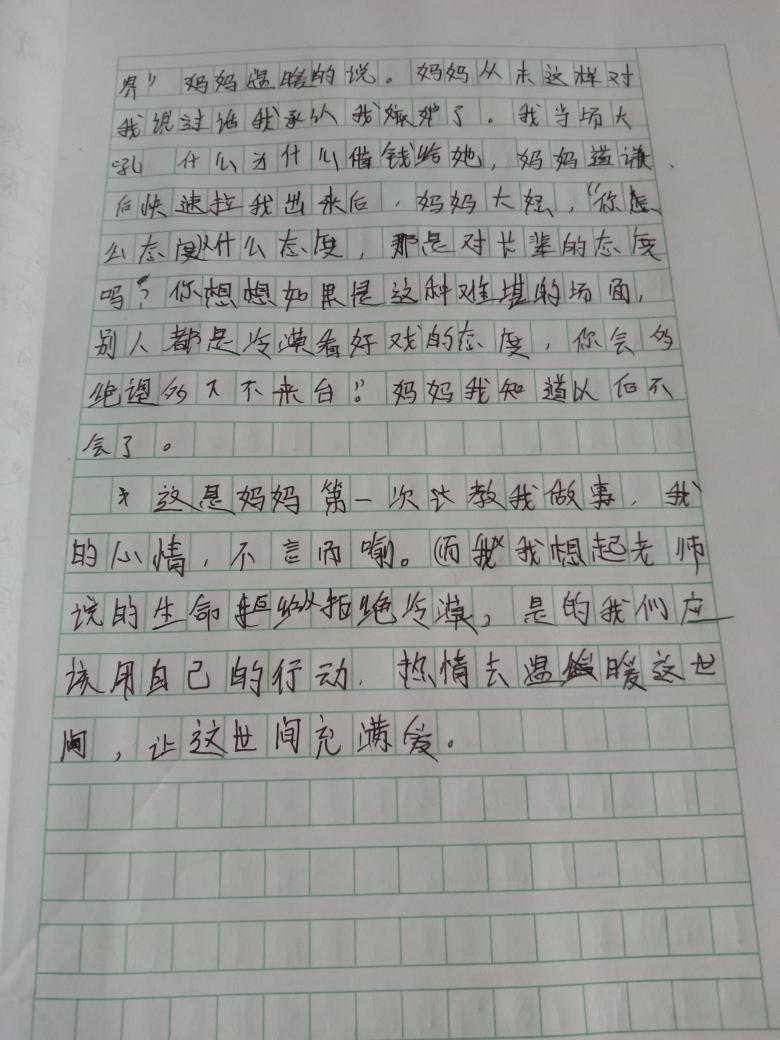 界”妈妈温暖的说。妈妈从未这样对
我说过话我承认我嫉妒了。我当场大
吼 什么为什么借钱给她，妈妈道谦
后快速拉我出来后，妈妈大怒，“你怎
么态度什么态度，那是对长辈的态度
吗？你想想如果是这种难堪的场面，
别人都是冷漠看好戏的态度，你会多
绝望多下不来台”。妈妈我知道以后不
会了。
这是妈妈第一次教我做事，我
的心情，不言而喻。我想起老师
说的生命拒绝冷漠，是的我们应
该用自己的行动，热情去温暖这世
间，让这世间充满爱。